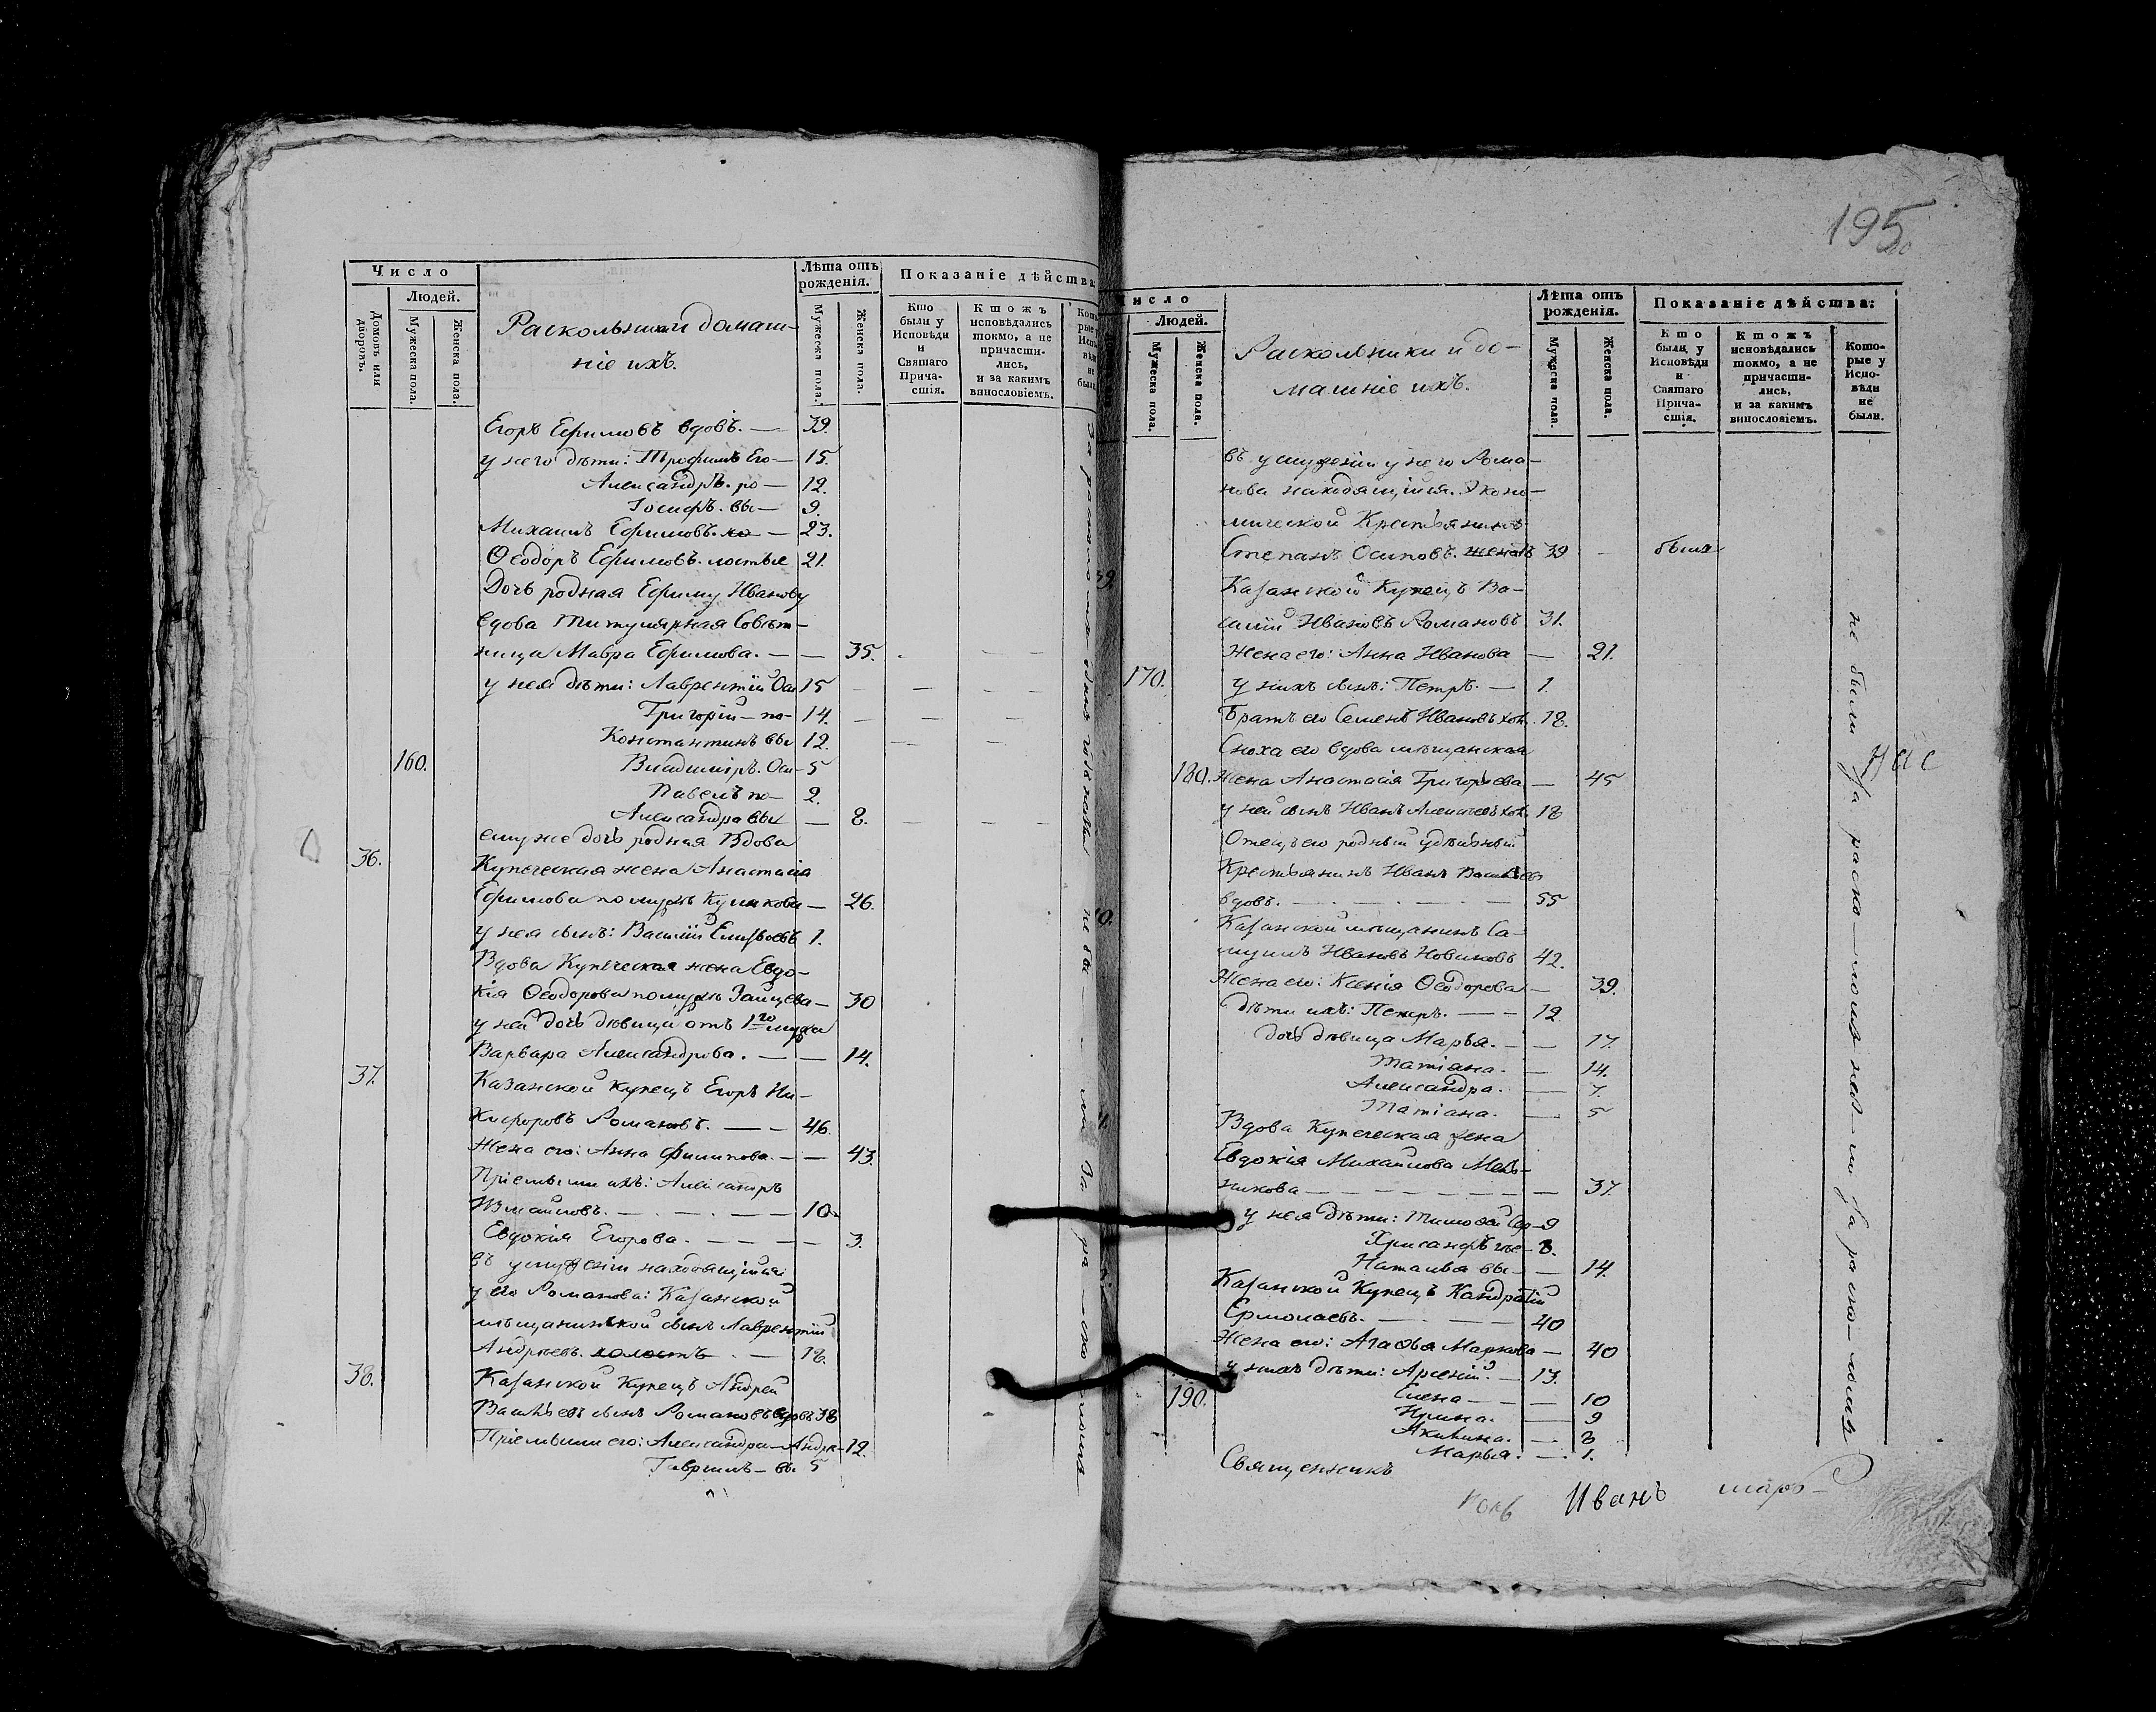 Число
Людей.
Домовъ или дворовъ.
Мужеска пола.
Женска пола.
Раскольники домаш-
ніе ихъ.
Лѣта отъ рожденія.
Мужеска пола.
Женска пола.
Показаніе дѣйства
Кто были у Исповѣди и Святаго Прича-стія.
Ктожъ исповѣдались токмо, а не причасти-лись, и за какимъ винословіемъ.
Егоръ Ефимовъ вдовъ. — 39.
у него дѣти: Трофимъ Его— 15.
Александръ. ро — 12.
Іосифъ. вы — 9.
Михаилъ Ефимовъ. хо — 23.
Ѳеодоръ Ефимовъ. лостые 21.
Дочь родная Ефиму Иванову
вдова Титулярная Совѣт-
ница Мавра Ефимова. — — 35.
у нея дѣти: Лаврентій Оси 15
Григорій — по- 14.
Константинъ вы 12.
160. Владимиръ. Оси- 5
Павелъ по- 2.
Александра вы — 8.
ему же дочь родная Вдова
36. Купеческая жена Анастасія
Ефимова по мужѣ Куликова — 26.
у нея сынъ: Василій 1.
Вдова Купеческая жена Евдо-
кія Ѳеодорова по мужѣ Зайцева — 30
у ней дочь дѣвица отъ 1го мужа
Варвара Александрова. — — 14.
37. Казанской купецъ Егоръ Ни-
кифоровъ Романовъ. — — 46.
Жена его: Анна Филипова. — — 43.
Пріемыши ихъ: Александръ
Измайловъ. — — — 10.
Евдокія Егорова. — — — 3.
въ услуженіи находящійся
у его Романова: Казанской
мѣщанинской сынъ Лаврентій
Андреевъ. холостъ. — 18.
38. Казанской купецъ Андрей
Васильевъ сынъ Романовъ вдовъ 38
Пріемыши его: Александра — Андре- 12.
Гавріилъ — вы 5
195
Число
Людей.
Мужеска пола.
Женска пола.
Раскольники и до-
машніе ихъ.
Лѣта отъ рожденія.
Мужеска пола.
Женска пола.
Показаніе дѣйства:
Кто были у Исповѣди и Святаго Прича-стія.
Ктожъ исповѣдались токмо, а не причасти-лись, и за какимъ винословіемъ.
Кото-рые у Испо-вѣди не были.
въ услуженіи у него Рома-
нова находящійся. Эконо-
мической Крестьянинъ
Степанъ Осиповъ. женатъ 39 — былъ
39. Казанской Купецъ Ва-
силій Ивановъ Романовъ 31.
Жена его: Анна Иванова — 21.
170. у нихъ сынъ: Петръ. — 1.
Братъ его Семенъ Ивановъ хол. 18.
Сноха его вдова мѣщанская
180. жена Анастасія Григорьева — 45
у ней сынъ Иванъ Алексѣевъ хол. 18
Отецъ его родный удѣльный
Крестьянинъ Иванъ Васильевъ
вдовъ. — — — — 55
40. Казанской мѣщанинъ Са-
муилъ Ивановъ Новиковъ 42.
Жена его: Ксенія Ѳеодорова — 39.
дѣти ихъ: Петръ. — — 12.
дочь дѣвица Марья. — — 17.
Татіана. — 14.
Александра. — 7.
Татіана. — 5
41. Вдова Купеческая жена
Евдокія Михайлова Мель-
никова — — — — — — 37.
у нея дѣти: Тимофей Сер- 9
Хрисанфъ гѣе- 8.
Наталья вы — — 14.
Казанской Купецъ Кандратій
Ермолаевъ. — — — 40
Жена его: Агафья Маркова — 40
у нихъ дѣти: Арсеній. — 13.
190. Елена — — — 10
Ирина. — 9
Акилина. — 3
Марья. — 1.
не были за раско-
Священникъ
Иванъ